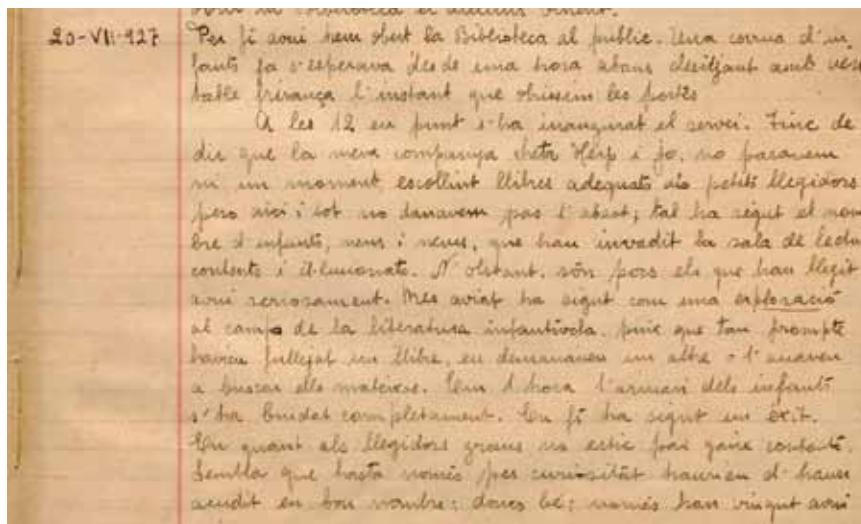 20-VII-927 Per fi avui hem obert la Biblioteca al públic. Una corrua d'in-
fants ja s'esperava desde una hora abans desitjant amb veri-
table frisança l'instant que obrissem les portes
A les 12 en punt s'ha inaugurat el servei. Tinc de
dir que la meva companya Herp i jo, no paravem
ni un moment, escollint llibres adequats als petits llegidors
pero aixi i tot no donavem pas l'abast; tal ha sigut el nom-
bre d'infants, nens i nenes, que han invadit la sala de lectu
contents i il·lusionats. N'obstant, són pocs els que han llegit
avui seriosament. Mes aviat ha sigut com una exploració
al camp de la literatura infantivola, puix que tan prompte
havien fullejat un llibre, en demanaven un altre o l'anaven
a buscar ells mateixos. Em 1 hora l'armari dels infants
s'ha buidat completament. En fi ha sigut un èxit.
En quant als llegidors grans no estic pas gaire contenta.
Sembla que hasta només per curiositat haurien d'haver
acudit en bon nombre; doncs bé; només han vingut avui